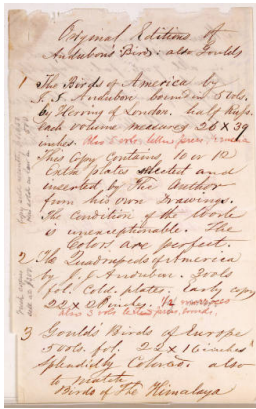 Original Editions of
Audubon's Birds: also Goulds
1 The Birds of America by
J. J. Audubon bound in 5 vols.
by Hering of London. half Russ.
each volume measures 26 X 39
inches. Also 5 vols. letter press,
This Copy Contains, 10 or 12
Extra plates selected and
inserted by The Author
from his own Drawings.
The Condition of the Work
is unexceptionable. The
Colors are perfect.
2 The Quadrupeds of America
by J. J. Audubon. 3 vols
fol. Cold. plates. early copy
22 X 28 inches. 1/2 morocco
Also 3 vols letter press, bound.
3 Goulds' Birds of Europe
5 vols. fol. 22 X 16 inches
Splendidly Colored. also
to match
Birds of The Himalaya